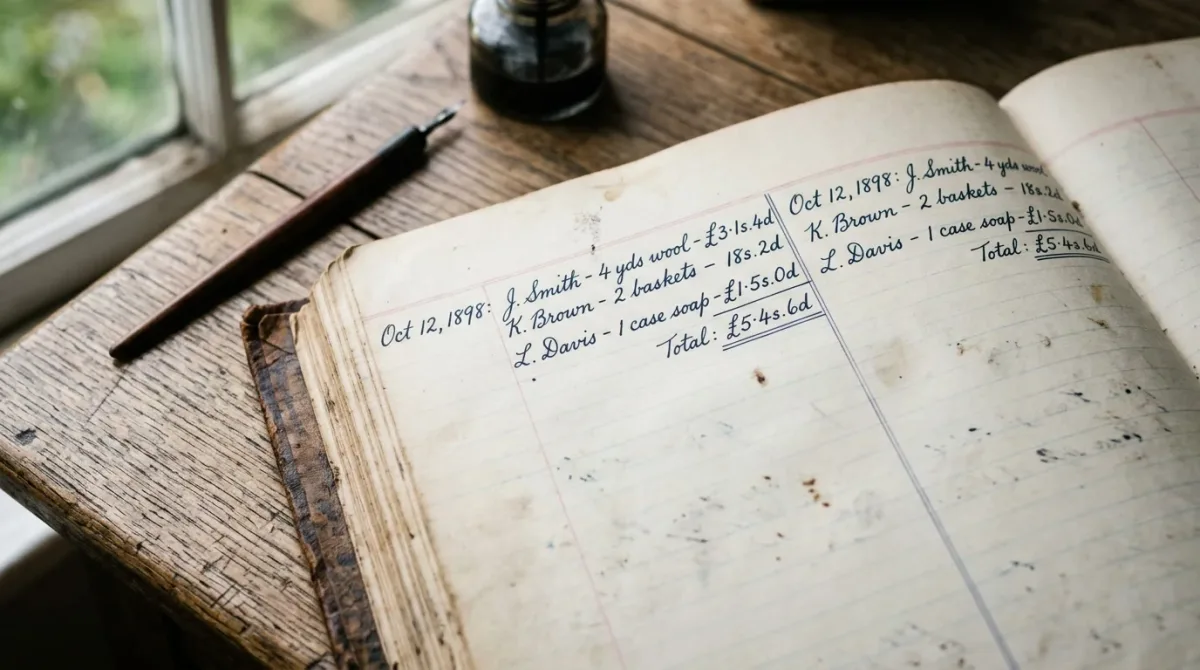 Oct 12, 1898: J. Smith - 4 yds wool - £3·1s.4d
K. Brown - 2 baskets - 18s.2d
L. Davis - 1 case soap - £1·5s.0d
Total: £5·4s.6d
Oct 12, 1898: J. Smith - 4 yds wool
K. Brown - 2 baskets - 18s.2d
L. Davis - 1 case soap - £1·5s.0d
Total: £5·4s.6d